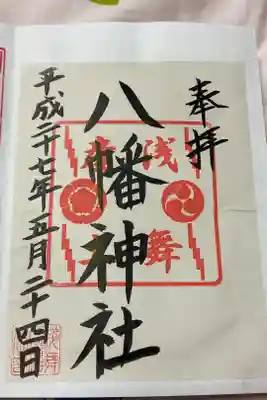 奉拝
八幡神社
浅舞
平成二十七年五月二十四日